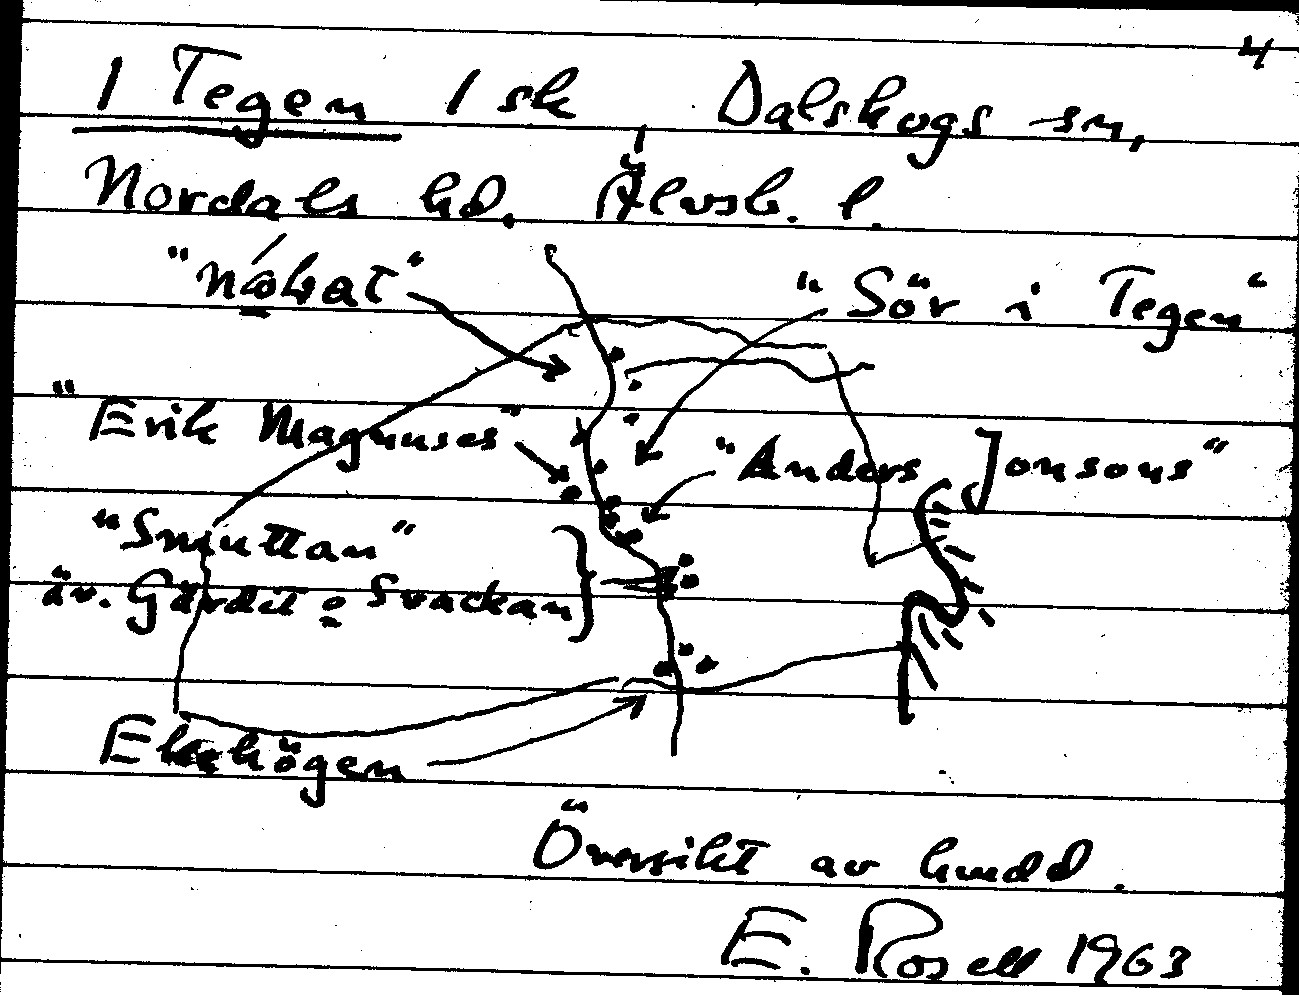 4
1 Tegen 1 sk, Dalskogs sn,
Nordals hd. Älvsb. l.
"Nolat" "Sör i Tegen"
"Erik Magnuses" "Anders Jonsons"
"Smuttan"
äv. Gärdit o Svackan
Ekehögen
Översikt av huvudd.
E. Rosell 1963